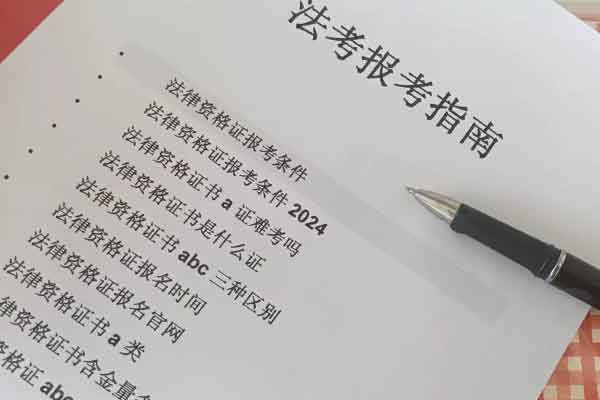 法考报考指南
法律资格证报考条件
法律资格证报考条件2024
法律资格证书a证难考吗
法律资格证书是什么证
法律资格证书abc三种区别
法律资格证报名时间
法律资格证报名官网
法律资格证书a类
律资格证书含金量
资格证abc